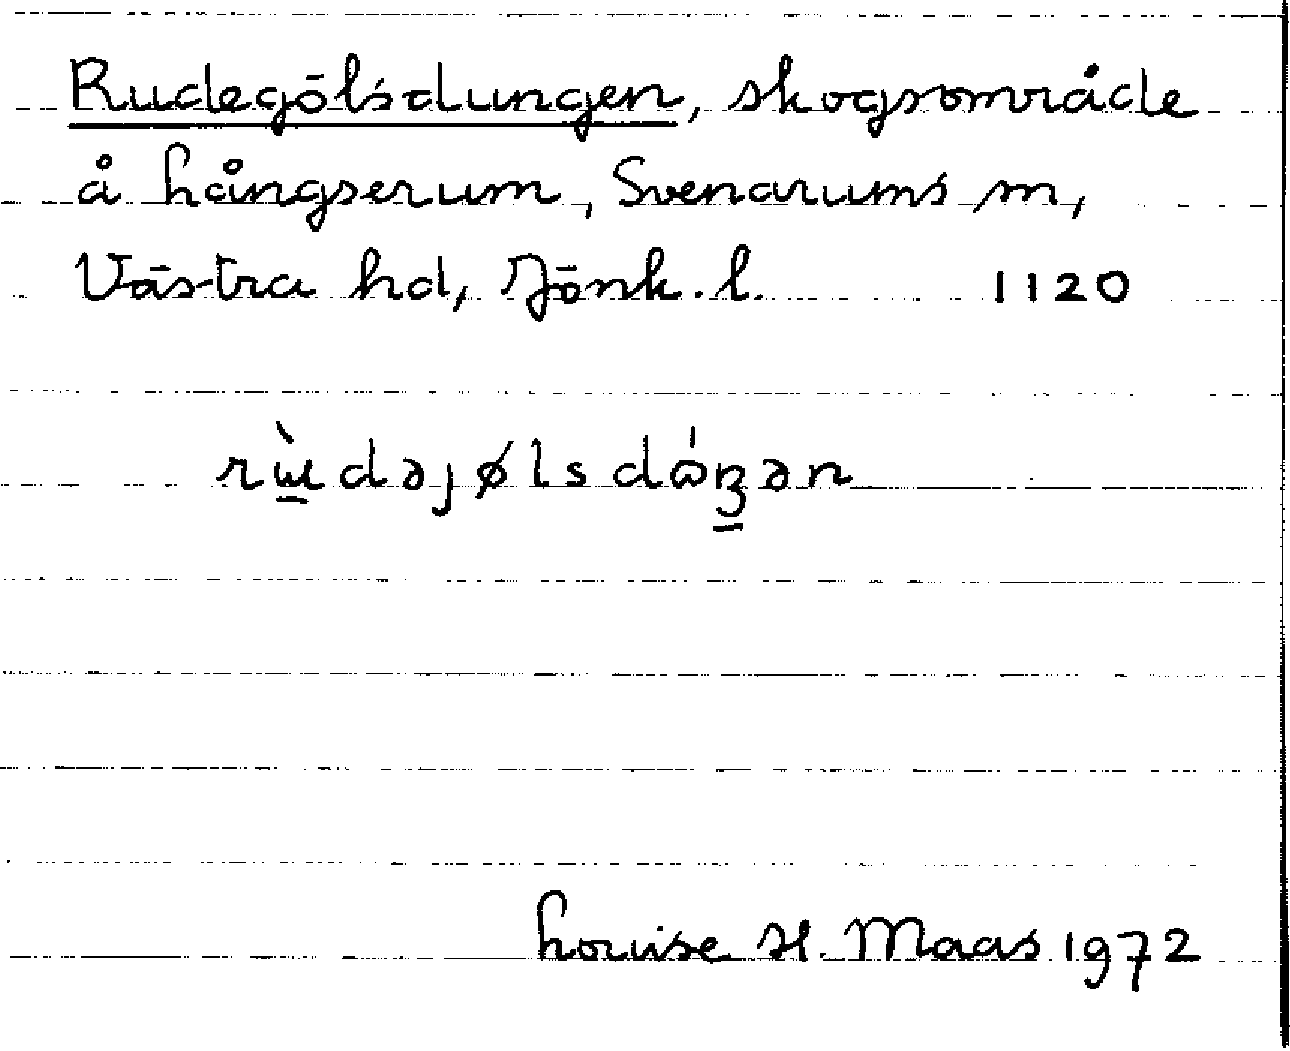 Rudegölsdungen, skogsområde
å Långserum, Svenarums sn,
Västra hd, Jönk. l. 1120
rɯ̱̀dəjølsdɷ́ŋ̱ən
Louise H. Maas 1972